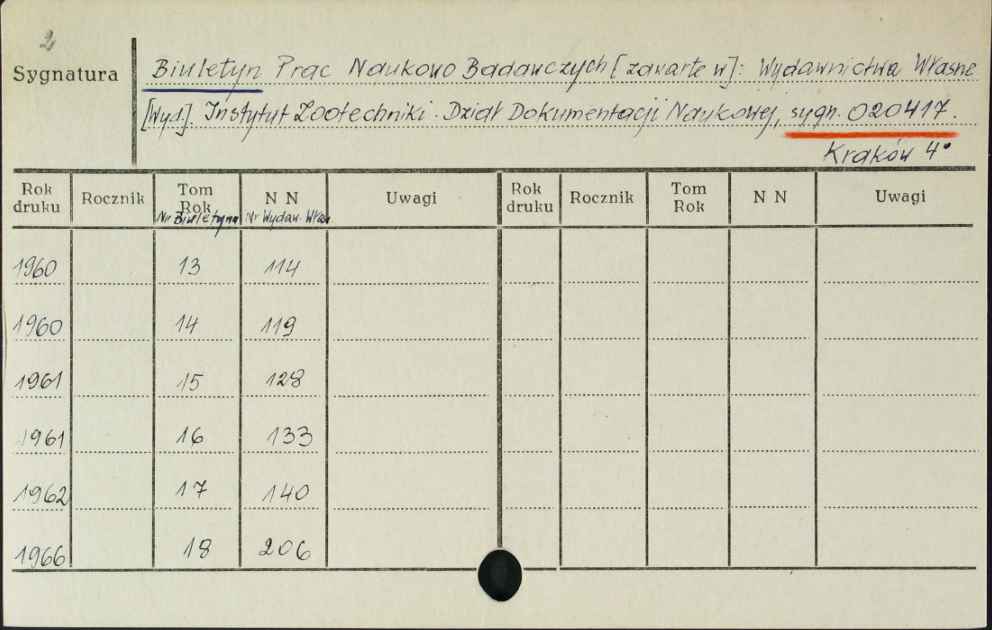 2
Sygnatura
Biuletyn Prac Naukowo Badawczych [zawarte w]: Wydawnictwa Własne
[Wyd.] Instytut Zootechniki. Dział Dokumentacji Naukowej, sygn. 020417.
Kraków 4°
Rok druku Rocznik Tom Rok N N Uwagi Rok druku Rocznik Tom Rok N N Uwagi
Nr Biuletynu Nr Wydaw. Włas.
1960 13 114
1960 14 119
1961 15 128
1961 16 133
1962 17 140
1966 18 206